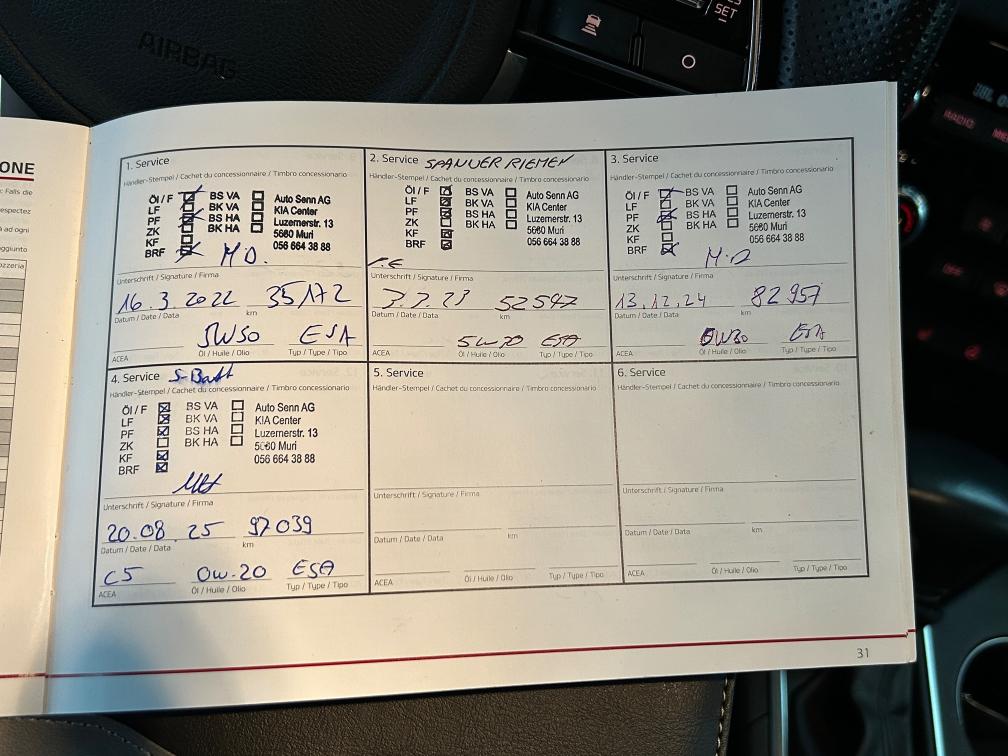 AIRBAG
SET
RADIO
ONE
: Falls die
espectez
à ad ogni
ggiunto
ozzeria
1. Service
Händler-Stempel / Cachet du concessionnaire / Timbro concessionario
Öl / F BS VA Auto Senn AG
LF BK VA KIA Center
PF BS HA Luzernerstr. 13
ZK BK HA 5630 Muri
KF 056 664 38 88
BRF M.D.
Unterschrift / Signature / Firma
16.3.2022 35172
Datum / Date / Data km
5W30 ESA
ACEA Öl / Huile / Olio Typ / Type / Tipo
2. Service SPANNER RIEMEN
Händler-Stempel / Cachet du concessionnaire / Timbro concessionario
Öl / F BS VA Auto Senn AG
LF BK VA KIA Center
PF BS HA Luzernerstr. 13
ZK BK HA 5630 Muri
KF 056 664 38 88
BRF
Unterschrift / Signature / Firma
52547
Datum / Date / Data km
ESA
ACEA Öl / Huile / Olio Typ / Type / Tipo
3. Service
Händler-Stempel / Cachet du concessionnaire / Timbro concessionario
Öl / F BS VA Auto Senn AG
LF BK VA KIA Center
PF BS HA Luzernerstr. 13
ZK BK HA 5630 Muri
KF 056 664 38 88
BRF M.D
Unterschrift / Signature / Firma
13.12.24 82957
Datum / Date / Data km
0W30 ESA
ACEA Öl / Huile / Olio Typ / Type / Tipo
4. Service S-Batt
Händler-Stempel / Cachet du concessionnaire / Timbro concessionario
Öl / F BS VA Auto Senn AG
LF BK VA KIA Center
PF BS HA Luzernerstr. 13
ZK BK HA 5630 Muri
KF 056 664 38 88
BRF
Unterschrift / Signature / Firma
20.08.25 97039
Datum / Date / Data km
C5 0W-20 ESA
ACEA Öl / Huile / Olio Typ / Type / Tipo
5. Service
Händler-Stempel / Cachet du concessionnaire / Timbro concessionario
Unterschrift / Signature / Firma
Datum / Date / Data km
ACEA Öl / Huile / Olio Typ / Type / Tipo
6. Service
Händler-Stempel / Cachet du concessionnaire / Timbro concessionario
Unterschrift / Signature / Firma
Datum / Date / Data km
ACEA Öl / Huile / Olio Typ / Type / Tipo
31